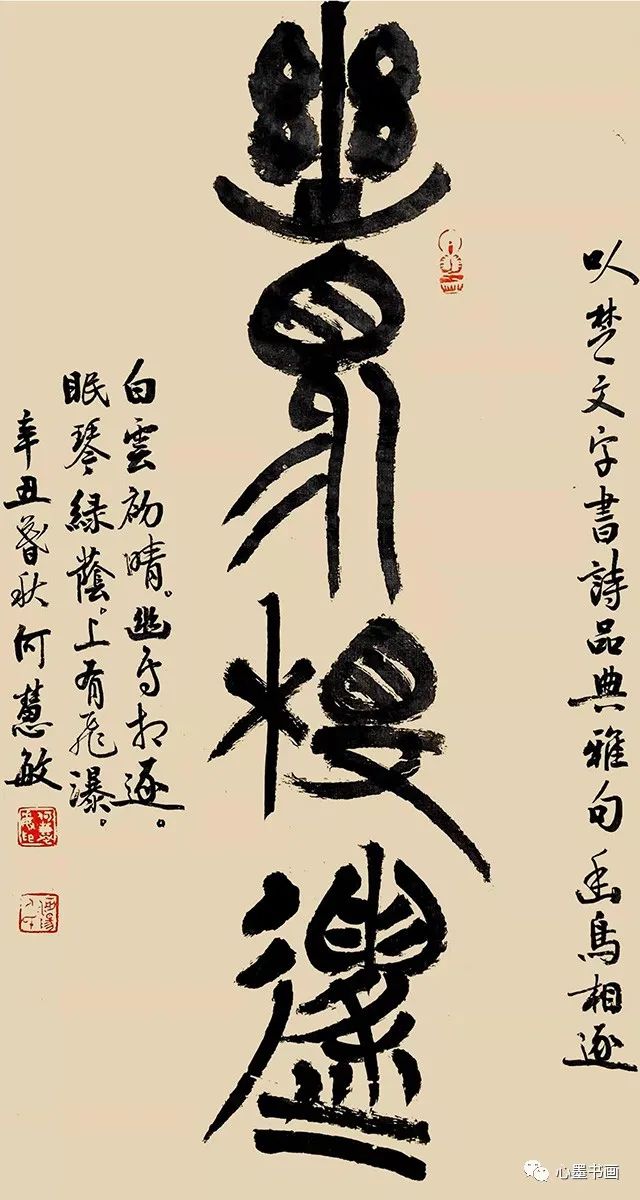 以楚文字書詩品典雅句幽鳥相逐
幽鳥相逐
白雲初晴。幽鳥相逐。
眠琴綠蔭。上有飛瀑。
辛丑暮秋何慧敏
心墨书画